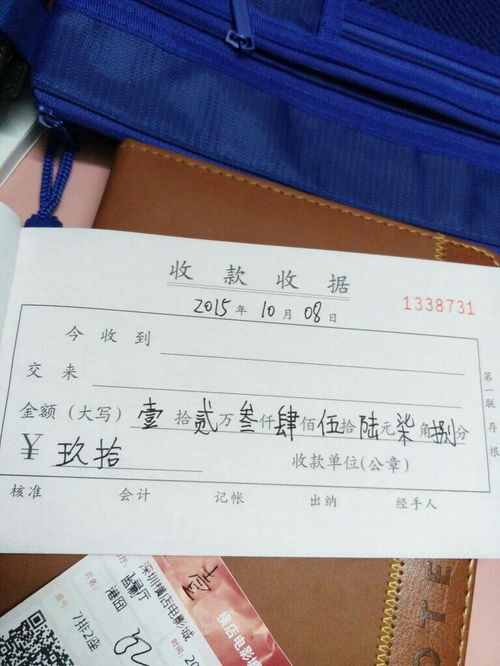 收款收据
2015年10月08日 1338731
今收到
交来
金额（大写）壹拾贰万叁仟肆佰伍拾陆元柒角捌分
¥玖拾 收款单位(公章)
核准 会计 记帐 出纳 经手人
第一联存根
深圳横店电影城
监影厅
片名
港囧
座号
7排2座
横店电影城